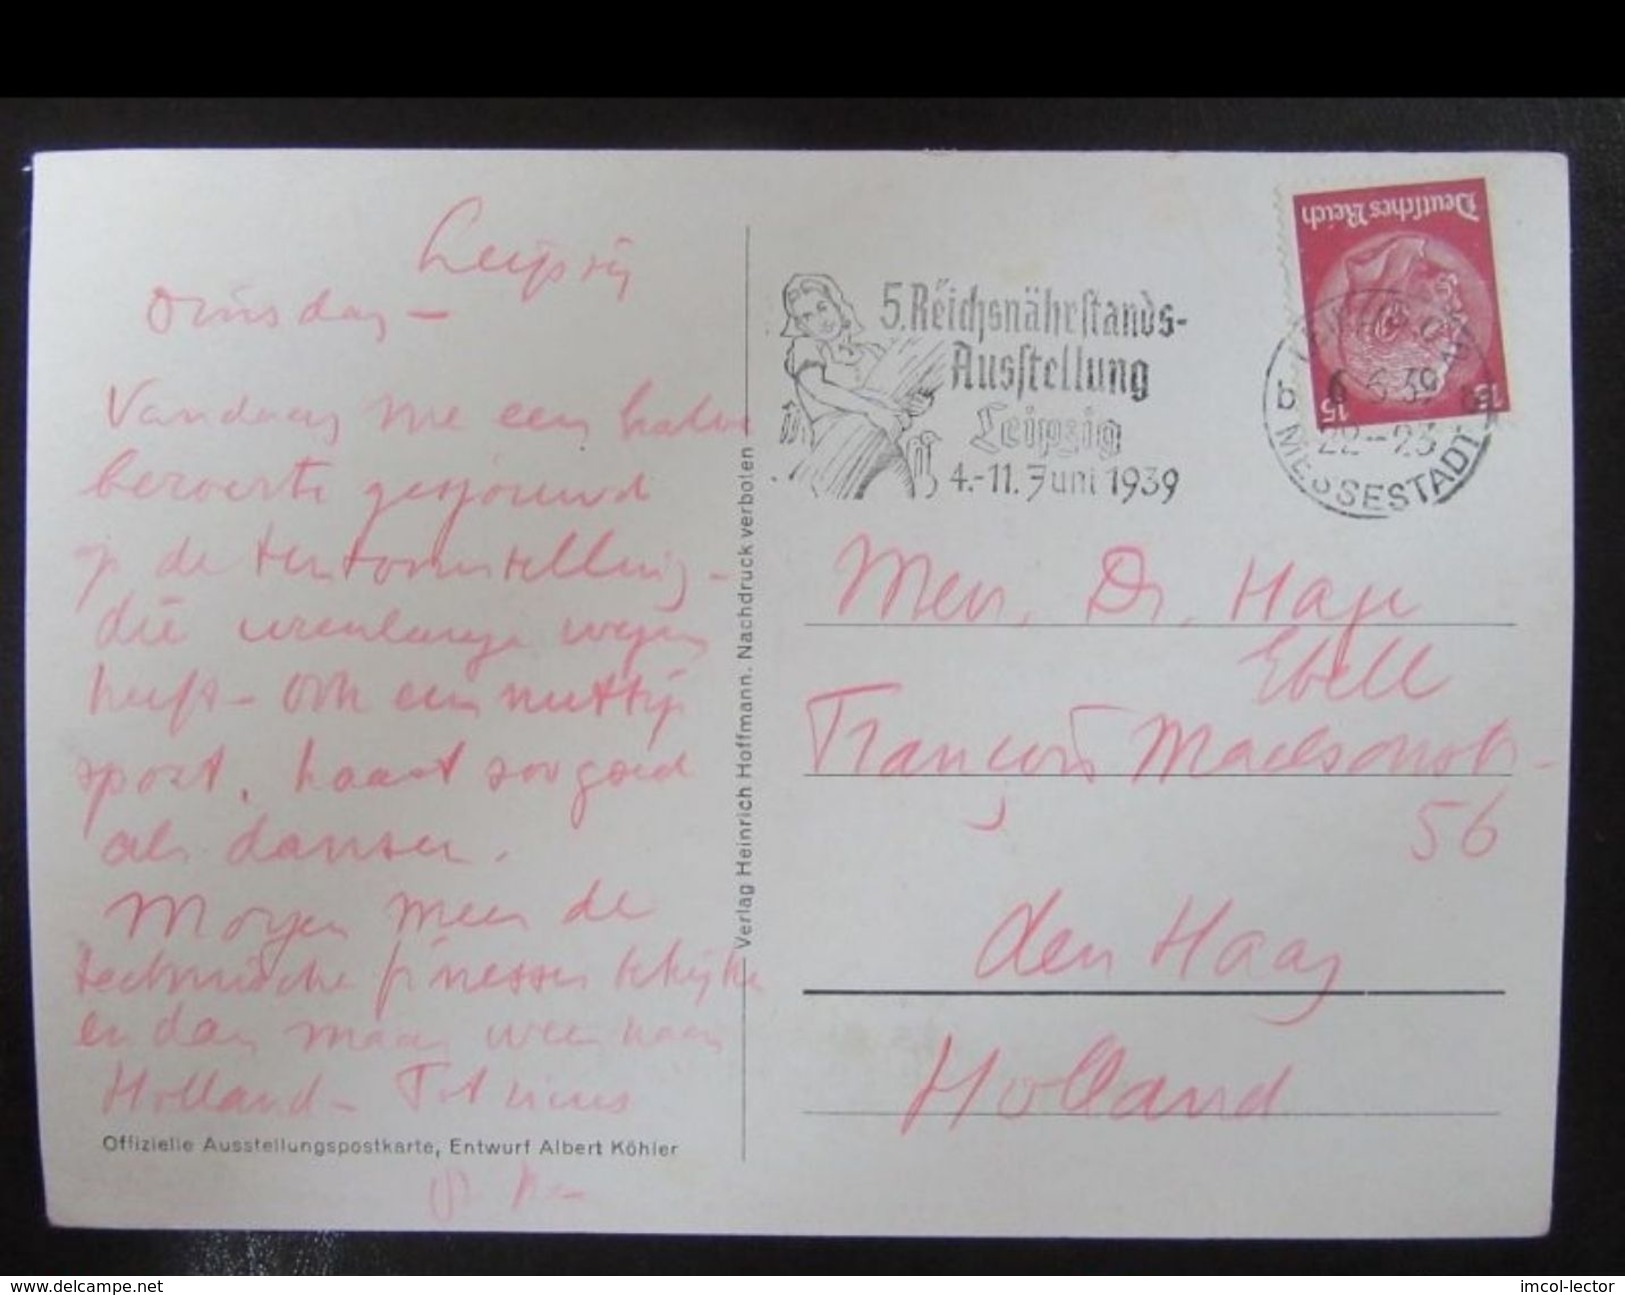 Leipzig
Dinsdag –
Vandaag me een halve
beroerte gesjouwd
op de tentoonstelling –
die urenlange wegen
heeft – Ook een nuttige
sport, haast zoo goed
als dansen.
Morgen meer de
technische finesses bekijken
en dan maar weer naar
Holland – Tot ziens
Offizielle Ausstellungspostkarte, Entwurf Albert Köhler
Verlag Heinrich Hoffmann. Nachdruck verboten
5. Reichsnährstands-
Ausstellung
Leipzig
4.-11. Juni 1939
Deutsches Reich
15 15
b 6.6.39
22--23
MESSESTADT
Mevr. Dr. Hage
Ebell
François Maelsonstr-
56
den Haag
Holland
www.delcampe.net
imcol-lector